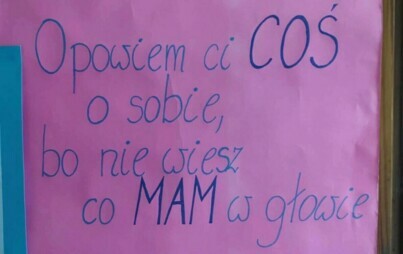 Opowiem ci COŚ
o sobie,
bo nie wiesz
co MAM w głowie